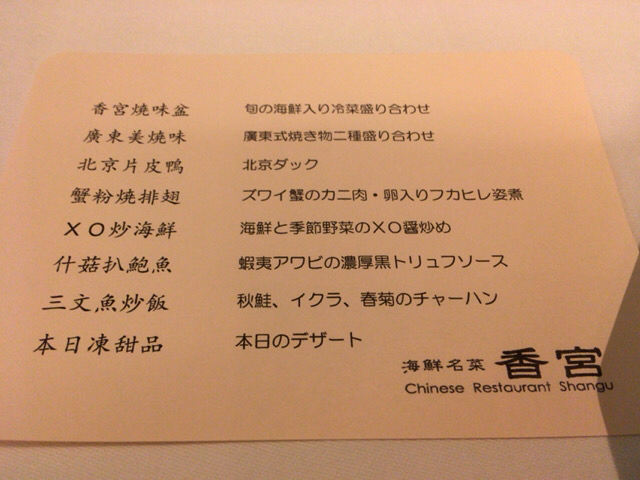 香宮燒味盆 旬の海鮮入り冷菜盛り合わせ
廣東美燒味 廣東式焼き物二種盛り合わせ
北京片皮鴨 北京ダック
蟹粉燒排翅 ズワイ蟹のカニ肉・卵入りフカヒレ姿煮
XO炒海鮮 海鮮と季節野菜のXO醤炒め
什菇扒鮑魚 蝦夷アワビの濃厚黒トリュフソース
三文魚炒飯 秋鮭、イクラ、春菊のチャーハン
本日凍甜品 本日のデザート
海鮮名菜 香宮
Chinese Restaurant Shangu